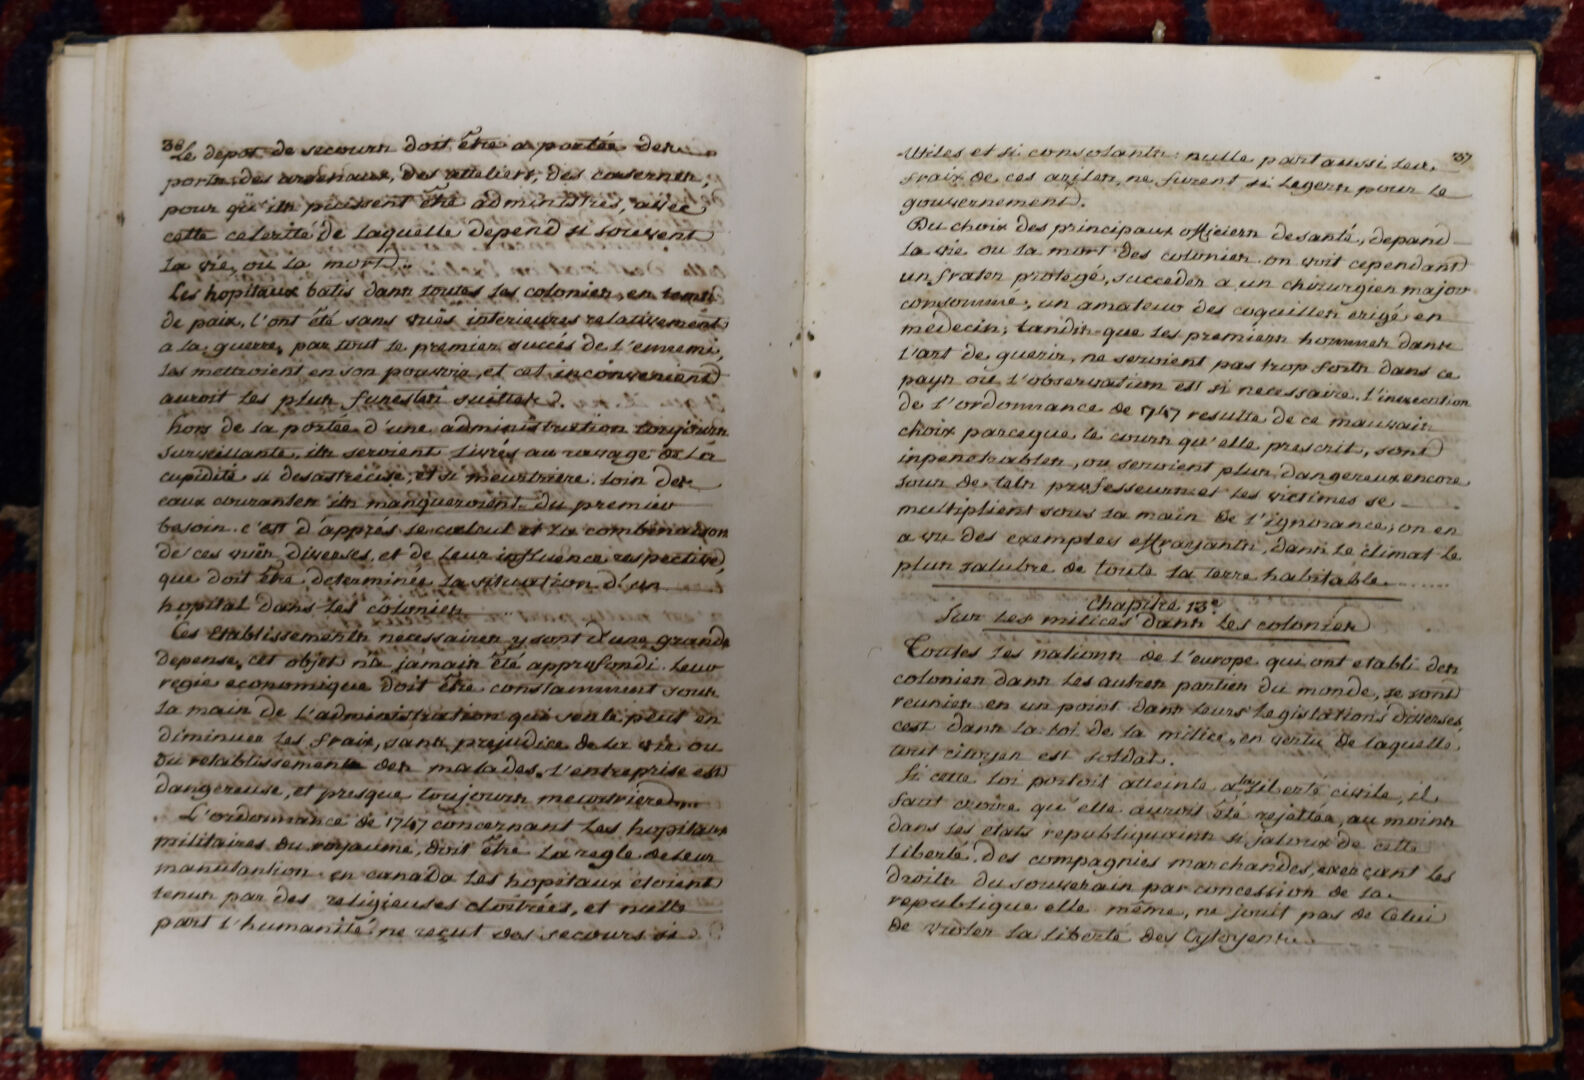 36
Le depot de secours doit être a portée des
ports des arsenaux, des atteliers, des casernes,
pour qu'ils puissent être administrés, avec
cette celerité de laquelle depend si souvent
la vie, ou la mort.
Les hopitaux batis dans toutes les colonies, en tems
de paix, l'ont été sans vuës interieures relativement
a la guerre, par tout le premier succès de l'ennemi,
les mettroient en son pouvoir, et cet inconvenient
auroit les plus funestes suittes.
hors de la portée d'une administration toujours
surveillante, ils seroient livrés au ravage de la
cupidité si desastreuse, et si meurtriere. loin des
eaux courantes ils manqueroient du premier
besoin. c'est d'apprés le calcul et la combinaison
de ces vuës diverses, et de leur influence respective,
que doit être determinée la situation d'un
hopital dans les colonies.
Ces Etablissements necessaires y sont d'une grande
depense, cet objet n'a jamais été approfondi. leur
regie economique doit être constamment sous
la main de l'administration qui seule peut en
diminuer les fraix, sans prejudice de la vie ou
du retablissement des malades. l'entreprise est
dangereuse, et presque toujours meurtriere.
L'ordonnance de 1747 concernant les hopitaux
militaires du royaume, doit être la regle de leur
manutention. en canada les hopitaux étoient
tenus par des religieuses cloitrées, et nulle
part l'humanité ne reçut des secours si
37
utiles et si consolants: nulle part aussi les
fraix de ces aziles, ne furent si legers pour le
gouvernement.
Du choix des principaux officiers de santé, depand
la vie ou la mort des colonies. on voit cependant
un frater protégé, succeder a un chirurgien major
consommé, un amateur des coquilles erigé en
medecin; tandis que les premiers hommes dans
l'art de guerir, ne seroient pas trop forts dans ce
pays ou l'observation est si necessaire. l'inexecution
de l'ordonnance de 1747 resulte de ce mauvais
choix parceque le cours qu'elle prescrit, sont
inpenetrables, ou seroient plus dangereux encore
sous de tels professeurs et les victimes se
multiplient sous la main de l'ignorance, on en
a vu des exemples effrayants, dans le climat le
plus salubre de toute la terre habitable.
Chapitre 13e.
Sur les milices dans les colonies
Toutes les nations de l'europe qui ont etabli des
colonies dans les autres parties du monde, se sont
reunies en un point dans leurs legislations diverses,
cest dans la loi de la milice, en vertu de laquelle
tout citoyen est soldat.
Si cette loi portoit atteinte a la liberté civile, il
faut croire qu'elle auroit été rejettée, au moins
dans les etats republiquains si jaloux de cette
liberté. Des compagnies marchandes, exerçant les
droits du souverain par concession de la
republique elle même, ne jouit pas de Celui
de violer la liberté des Cytoyens.